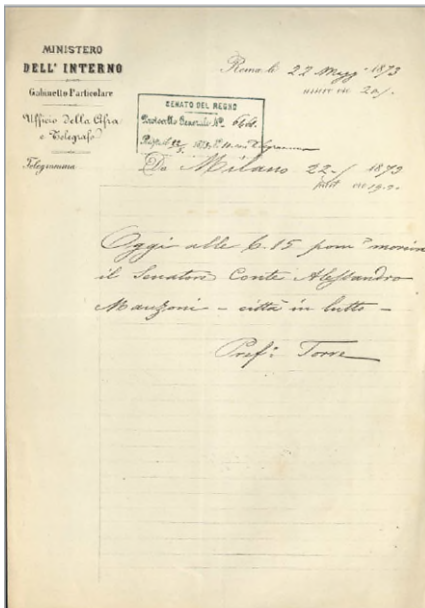 MINISTERO
DELL' INTERNO
Gabinetto Particolare
Ufficio della Cifra
e Telegrafo
Telegramma
Roma li 22 Magg. 1873
ore 20/-
SENATO DEL REGNO
Protocollo Generale Nº
Da Milano 22-/ 1873
ore 19.20
Oggi alle 6.15 pomº moriva
il Senatore Conte Alessandro
Manzoni - città in lutto -
Prefº Torre